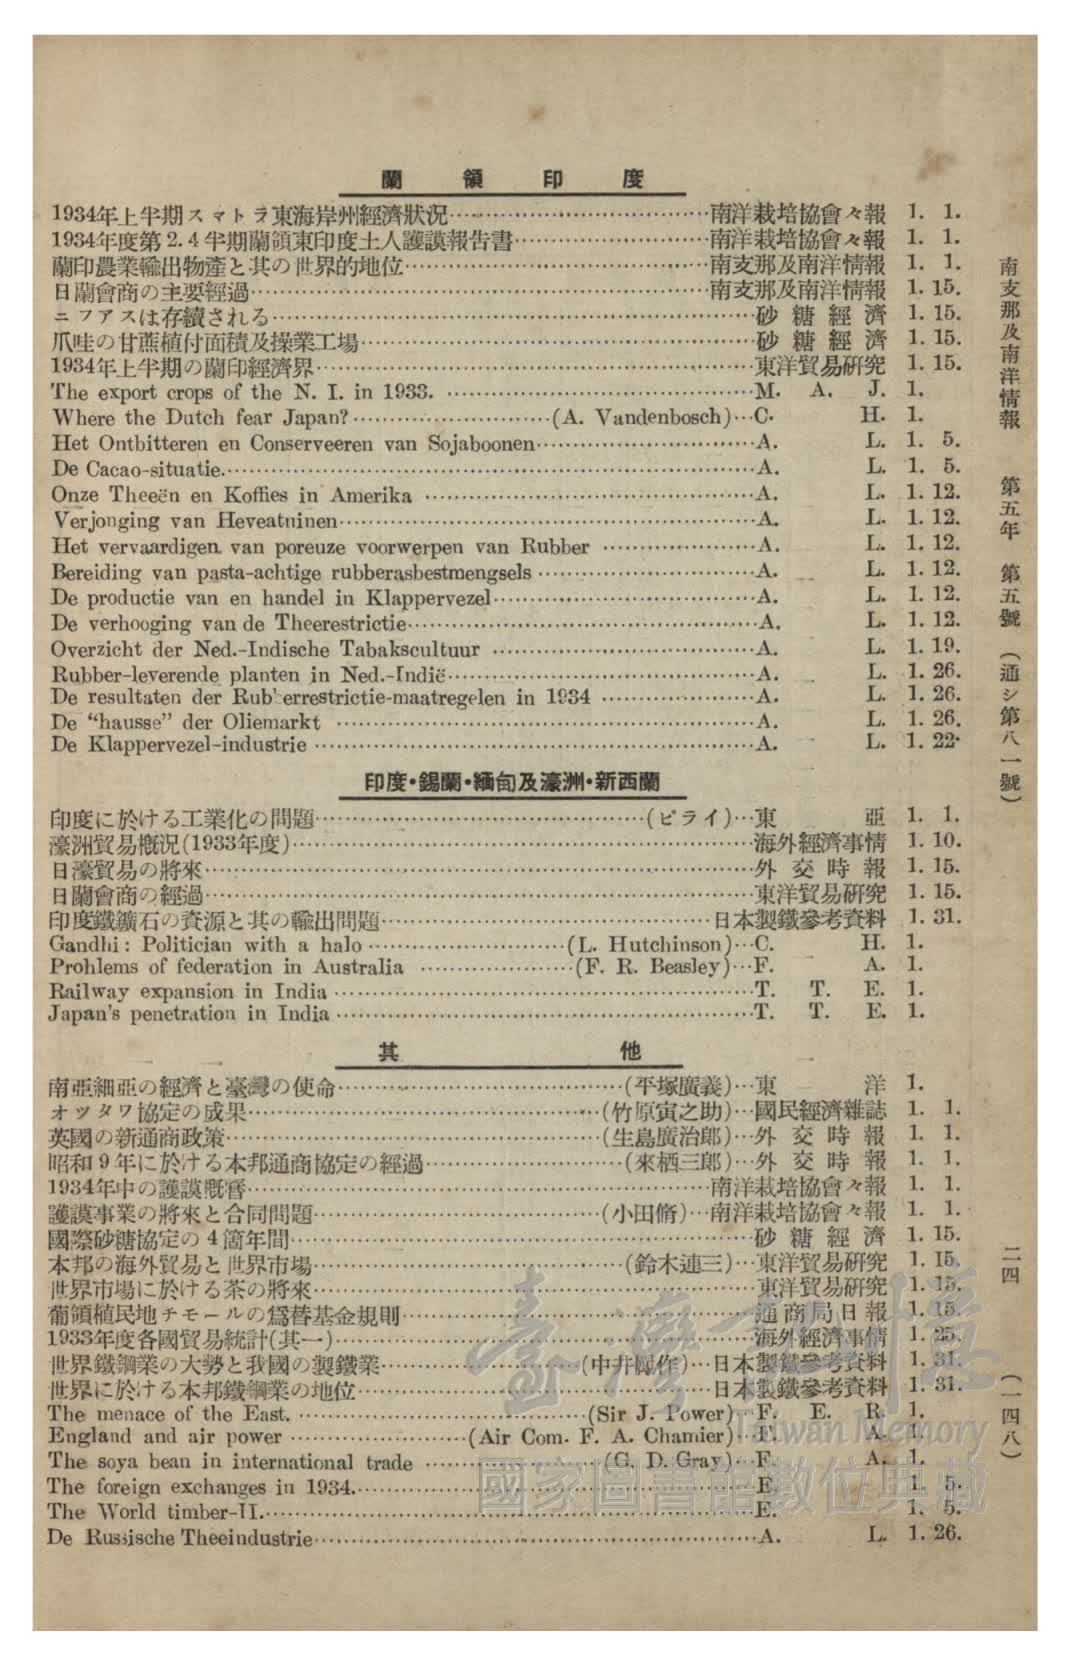 蘭領印度
1934年上半期スマトラ東海岸州經濟狀況…南洋栽培協會々報 1. 1.
1934年度第2.4半期蘭領東印度土人護謨報告書…南洋栽培協會々報 1. 1.
蘭印農業輸出物產と其の世界的地位…南支那及南洋情報 1. 1.
日蘭會商の主要經過…南支那及南洋情報 1. 15.
ニフアスは存續される…砂糖經濟 1. 15.
爪哇の甘蔗植付面積及操業工場…砂糖經濟 1. 15.
1934年上半期の蘭印經濟界…東洋貿易硏究 1. 15.
The export crops of the N. I. in 1933. …M. A. J. 1.
Where the Dutch fear Japan?…(A. Vandenbosch)…C. H. 1.
Het Ontbitteren en Conserveeren van Sojaboonen…A. L. 1. 5.
De Cacao-situatie.…A. L. 1. 5.
Onze Theeën en Koffies in Amerika …A. L. 1. 12.
Verjonging van Heveatuinen…A. L. 1. 12.
Het vervaardigen van poreuze voorwerpen van Rubber …A. L. 1. 12.
Bereiding van pasta-achtige rubberasbestmengsels…A. L. 1. 12.
De productie van en handel in Klappervezel…A. L. 1. 12.
De verhooging van de Theerestrictie…A. L. 1. 12.
Overzicht der Ned.-Indische Tabakscultuur …A. L. 1. 19.
Rubber-leverende planten in Ned.-Indië…A. L. 1. 26.
De resultaten der Rubberrestrictie-maatregelen in 1934 …A. L. 1. 26.
De “hausse” der Oliemarkt …A. L. 1. 26.
De Klappervezel-industrie …A. L. 1. 22.
印度・錫蘭・緬甸及濠洲・新西蘭
印度に於ける工業化の問題…(ピライ)…東亞 1. 1.
濠洲貿易槪況(1933年度)…海外經濟事情 1. 10.
日濠貿易の將來…外交時報 1. 15.
日蘭會商の經過…東洋貿易硏究 1. 15.
印度鐵鑛石の資源と其の輸出問題…日本製鐵參考資料 1. 31.
Gandhi: Politician with a halo…(L. Hutchinson)…C. H. 1.
Prohlems of federation in Australia …(F. R. Beasley)…F. A. 1.
Railway expansion in India …T. T. E. 1.
Japan's penetration in India…T. T. E. 1.
其他
南亞細亞の經濟と臺灣の使命…(平塚廣義)…東洋 1.
オツタワ協定の成果…(竹原寅之助)…國民經濟雜誌 1. 1.
英國の新通商政策…(生島廣治郎)…外交時報 1. 1.
昭和9年に於ける本邦通商協定の經過…(來栖三郎)…外交時報 1. 1.
1934年中の護謨槪…南洋栽培協會々報 1. 1.
護謨事業の將來と合同問題…(小田脩)…南洋栽培協會々報 1. 1.
國際砂糖協定の4箇年間…砂糖經濟 1. 15.
本邦の海外貿易と世界市場…(鈴木連三)…東洋貿易硏究 1. 15.
世界市場に於ける茶の將來…東洋貿易硏究 1. 15.
葡領植民地チモールの爲替基金規則…通商局日報 1. 15.
1933年度各國貿易統計(其一)…海外經濟事情 1. 25.
世界鐵鋼業の大勢と我國の製鐵業…(中井勵作)…日本製鐵參考資料 1. 31.
世界に於ける本邦鐵鋼業の地位…日本製鐵參考資料 1. 31.
The menace of the East. …(Sir J. Power)…F. E. R. 1.
England and air power …(Air Com. F. A. Chamier)…F. A. 1.
The soya bean in international trade …(G. D. Gray)…F. A. 1.
The foreign exchanges in 1934.…E. 1. 5.
The World timber-II.…E. 1. 5.
De Russische Theeindustrie…A. L. 1. 26.
南支那及南洋情報 第五年 第五號 (通シ第八一號)
二四 (一四八)
臺灣記憶
Taiwan Memory
國家圖書館數位典藏